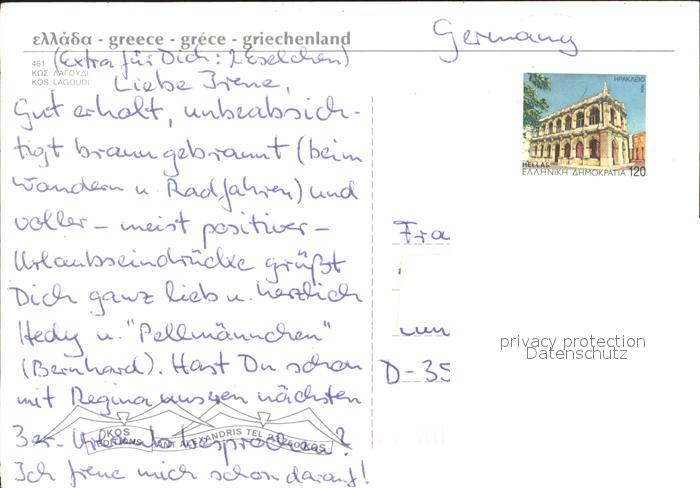 ελλάδα - greece - gréce - griechenland
Germany
461
ΚΩΣ: ΛΑΓΟΥΔΙ
KOS: LAGOUDI
(Extra für Dich: 2 Eselchen)
Liebe Irene,
Gut erholt, unbeabsich-
tigt braun gebrannt (beim
Wandern u. Radfahren) und
voller – meist positiver –
Urlaubseindrücke grüßt
Dich ganz lieb u. herzlich
Hedy u. "Pellmännchen"
(Bernhard). Hast Du schon
mit Regina unseren nächsten
3er-Urlaub besprochen?
Ich freue mich schon darauf!
ΗΡΑΚΛΕΙΟ
HELLAS
ΕΛΛΗΝΙΚΗ ΔΗΜΟΚΡΑΤΙΑ 120
Fra
D-35
privacy protection
Datenschutz
KOS
ALEXANDRIS TEL
KOS